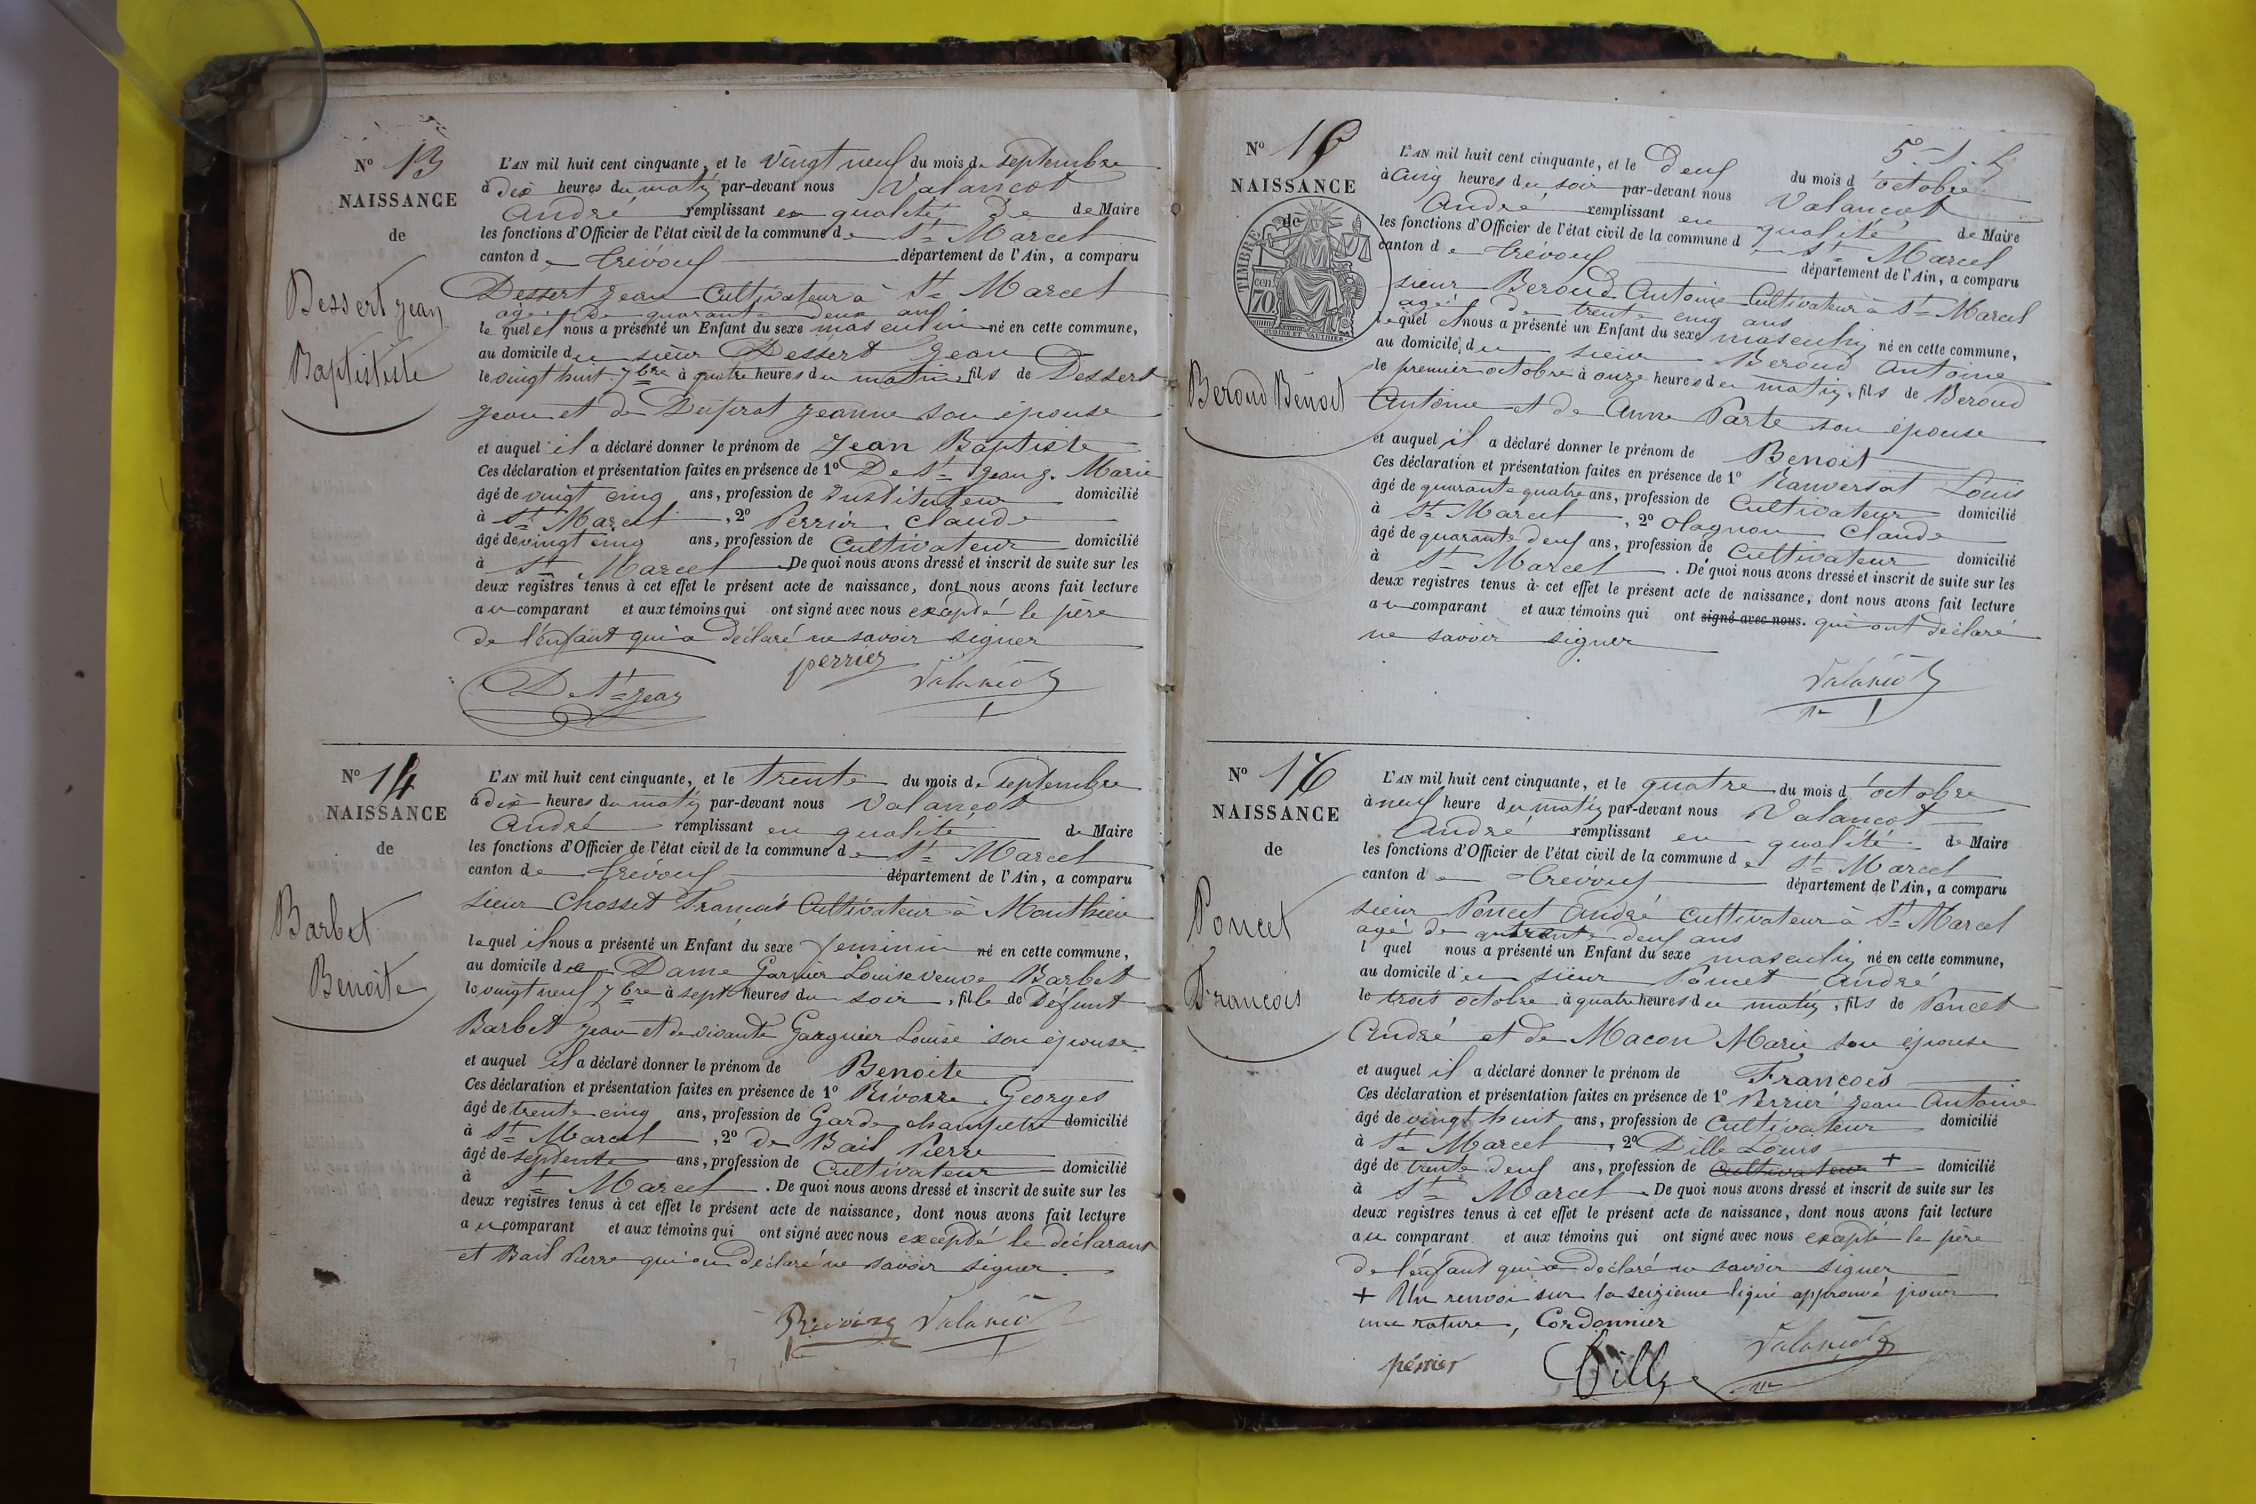 N° 13
NAISSANCE
de
Dessert Jean
Baptististe
L'AN mil huit cent cinquante, et le vingt neuf du mois de septembre
à dix heures du matin par-devant nous Valancot
André remplissant en qualité de de Maire
les fonctions d'Officier de l'état civil de la commune de St Marcel
canton de Trévoux département de l'Ain, a comparu
Dessert Jean Cultivateur à St Marcel
agé de quarante deux ans
le quel et nous a présenté un Enfant du sexe masculin né en cette commune,
au domicile du sieur Dessert Jean
le vingt huit 7bre à quatre heures du matin, fils de Dessert
Jean et de Duprat Jeanne son épouse
et auquel il a déclaré donner le prénom de Jean Baptiste
Ces déclaration et présentation faites en présence de 1° De St Jean J. Marie
âgé de vingt cinq ans, profession de Instituteur domicilié
à St Marcel, 2° Perrier Claude
âgé de vingt cinq ans, profession de Cultivateur domicilié
à St Marcel De quoi nous avons dressé et inscrit de suite sur les
deux registres tenus à cet effet le présent acte de naissance, dont nous avons fait lecture
au comparant et aux témoins qui ont signé avec nous excépdé le père
de l'enfant qui a déclaré ne savoir signer
perrier
De St Jean Valancot
N° 14
NAISSANCE
de
Barbet
Benoite
L'AN mil huit cent cinquante, et le trente du mois de septembre
à dix heures du matin par-devant nous Valancot
André remplissant en qualité de Maire
les fonctions d'Officier de l'état civil de la commune de St Marcel
canton de Trévoux département de l'Ain, a comparu
sieur Chosset François Cultivateur à Monthieu
le quel il nous a présenté un Enfant du sexe feminin né en cette commune,
au domicile de Dame Garnier Louise veuve Barbet
le vingt neuf 7bre à sept heures du soir, fille de Défunt
Barbet Jean et de vivante Louise son épouse
et auquel il a déclaré donner le prénom de Benoite
Ces déclaration et présentation faites en présence de 1° Rivoire Georges
âgé de trente cinq ans, profession de Garde champetre domicilié
à St Marcel, 2° de Bail Pierre
âgé de septente ans, profession de Cultivateur domicilié
à St Marcel. De quoi nous avons dressé et inscrit de suite sur les
deux registres tenus à cet effet le présent acte de naissance, dont nous avons fait lecture
au comparant et aux témoins qui ont signé avec nous excépdé le déclarant
et Bail Pierre qui on déclaré ne savoir signer.
Valancot
5
N° 15
NAISSANCE
de
TIMBRE
70
Beroud Benoit
L'AN mil huit cent cinquante, et le deux du mois d'octobre
à cinq heures du soir par-devant nous Valancot
André remplissant en qualité de Maire
les fonctions d'Officier de l'état civil de la commune de St Marcel
canton de Trévoux département de l'Ain, a comparu
sieur Beroud Antoine Cultivateur à St Marcel
agé de trente cinq ans
le quel et nous a présenté un Enfant du sexe masculin né en cette commune,
au domicile du sieur Beroud Antoine
le premier octobre à onze heures du matin, fils de Beroud
Antoine et de Anne Parte son épouse
et auquel il a déclaré donner le prénom de Benoit
Ces déclaration et présentation faites en présence de 1° Ranversat Louis
âgé de quarante quatre ans, profession de Cultivateur domicilié
à St Marcel, 2° Olagnon Claude
âgé de quarante deux ans, profession de Cultivateur domicilié
à St Marcel. De quoi nous avons dressé et inscrit de suite sur les
deux registres tenus à cet effet le présent acte de naissance, dont nous avons fait lecture
au comparant et aux témoins qui ont signé avec nous. qui ont déclaré
ne savoir signer
Valancot
N° 16
NAISSANCE
de
Poncet
Francois
L'AN mil huit cent cinquante, et le quatre du mois d'octobre
à neuf heure du matin par-devant nous Valancot
André remplissant en qualité de Maire
les fonctions d'Officier de l'état civil de la commune de St Marcel
canton de Trévoux département de l'Ain, a comparu
sieur Poncet André cultivateur à St Marcel
agé de quarante deux ans
l quel nous a présenté un Enfant du sexe masculin né en cette commune,
au domicile du sieur Poncet André
le trois octobre à quatre heures du matin, fils de Poncet
André et de Macon Marie son épouse
et auquel il a déclaré donner le prénom de Francois
Ces déclaration et présentation faites en présence de 1° Perrier Jean Antoine
âgé de vingt huit ans, profession de Cultivateur domicilié
à St Marcel, 2° Dille Louis
âgé de trente deux ans, profession de Cultivateur + domicilié
à St Marcel. De quoi nous avons dressé et inscrit de suite sur les
deux registres tenus à cet effet le présent acte de naissance, dont nous avons fait lecture
au comparant et aux témoins qui ont signé avec nous excepté le père
de l'enfant qui a déclaré ne savoir signer
+ Un renvoi sur la seizieme ligne approuvé pour
une rature, Cordonnier
Valancot
périer Dille